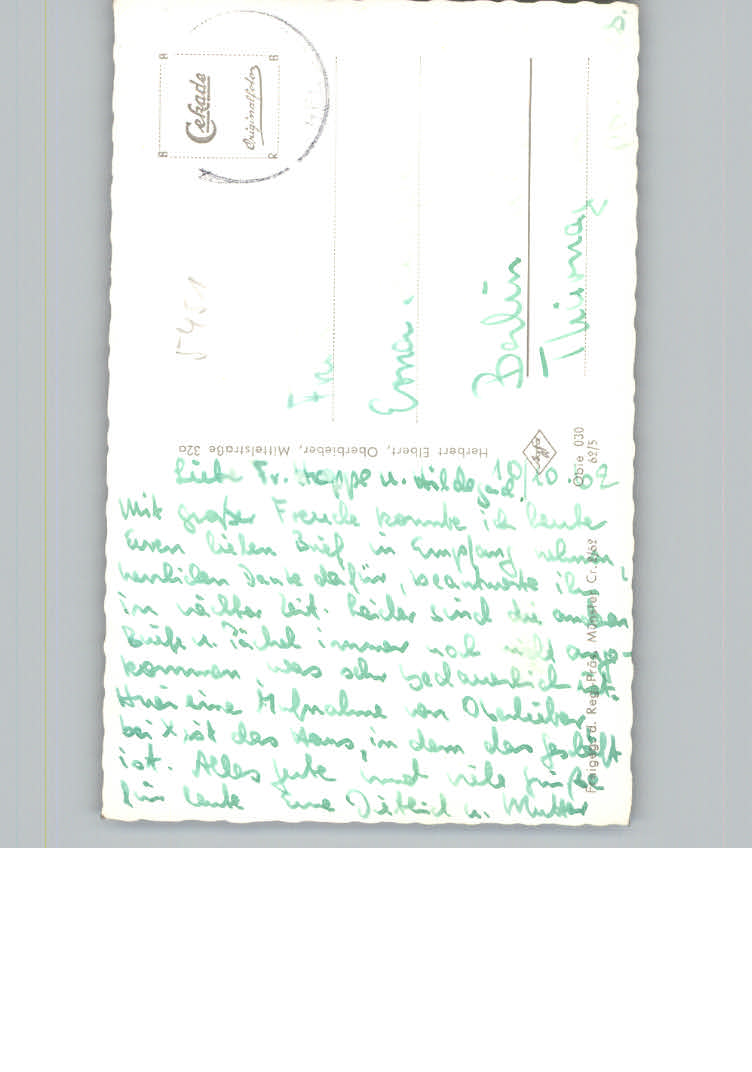 Cekade
Originalfoto
5451
Erna
Berlin
Herbert Elbert, Oberbieber, Mittelstraße 32a
Agfa
Obie 030
62/5
Freigeg. d. Reg. Präs. Münster Cr.
10/10.62
Liebe Fr. Hoppe u. Hildegard,
Mit großer Freude konnte ich heute
Euren lieben Brief in Empfang nehmen,
herzlichen Dank dafür, beantworte ihn
in nächster Zeit. Leider sind die anderen
Briefe u. Päckel immer noch nicht ange-
kommen, was sehr bedauerlich ist.
Hier eine Aufnahme von Oberbieber,
bei X ist das Haus, in dem das Geschäft
ist. Alles Gute und viele Grüße
für heute Eure Dietlind u. Mutter